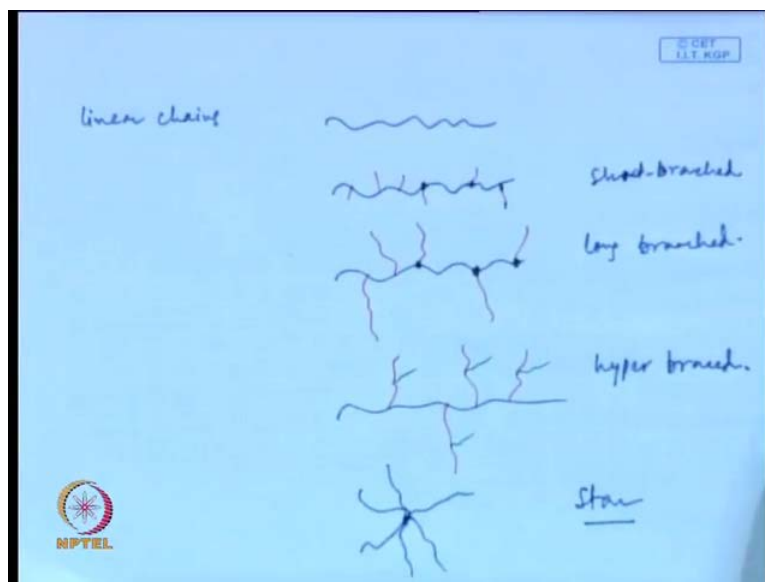 © CET
I.I.T. KGP
linear chains
short-brached
long branched.
hyper braced.
Star
NPTEL